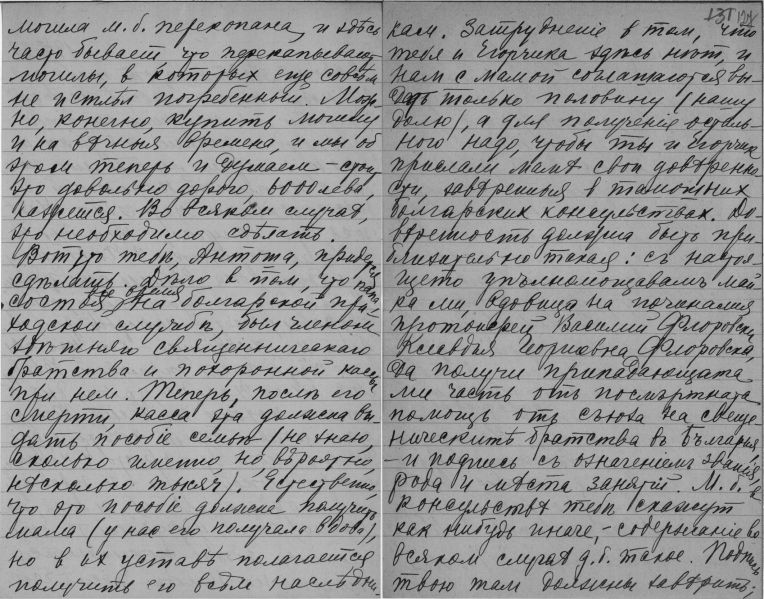 могила м.б. перекопана, и здѣсь
часто бываетъ, что перекапываютъ
могилы, в которых еще совсѣм
не истлѣл погребенный. Мож-
но, конечно, купить могилу
и на вѣчныя времена, и мы об
этом теперь и думаем – стоит
это довольно дорого, 6000 лева,
кажется. Во всяком случаѣ,
это необходимо сдѣлать.
Вот что тебѣ, Антоша, придется
сдѣлать. Дѣло в том, что папа,
состоя на болгарской при-
ходской службѣ, был членом
здѣшняго священническаго
братства и похоронной кассы
при нем. Теперь, послѣ его
смерти, касса эта должна вы-
дать пособіе семьѣ (не знаю,
сколько именно, но вѣроятно,
нѣсколько тысяч). Естественно,
что это пособіе должна получить
мама (у нас его получала вдова),
но в их уставѣ полагается
получить его всѣм наслѣдни-
131
кам. Затрудненіе в том, что
тебя и Егорчика здѣсь нѣт, и
нам с мамой соглашаются вы-
дать только половину (нашу
долю), а для полученія осталь-
ного надо, чтобы ты и Егорчик
прислали мамѣ свои довѣренно-
сти, завѣренныя в тамошних
болгарских консульствах. До-
вѣренность должна быть при-
близительно такая: съ настоя-
щето упълномощавамъ май-
ка ми, вдовица на починалия
протоиерей Василий Флоровски,
Клавдия Георгиевна Флоровска,
да получи припадающата
ми часть отъ посмъртната
помощь отъ съюза на свеще-
ническитѣ братства въ България,
– и подпись съ означеніем званія,
рода и мѣста занятій. М.б., в
консульствѣ тебѣ скажут
как нибудь иначе, – содержаніе во
всяком случаѣ д.б. такое. Подпись
твою там должны завѣрить;